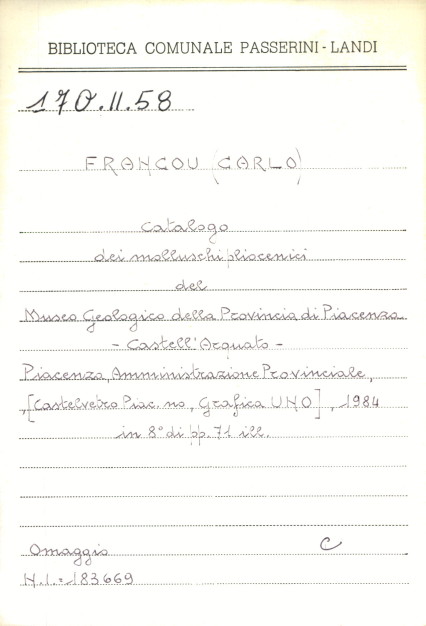 BIBLIOTECA COMUNALE PASSERINI-LANDI
170.II.58
FRANCOU (CARLO)
Catalogo
dei molluschi pliocenici
del
Museo Geologico della Provincia di Piacenza
- Castell'Arquato -
Piacenza, Amministrazione Provinciale,
[Castelvetro Piac.no, Grafica UNO], 1984
in 8° di pp. 71 ill.
Omaggio C
N.I.=183669